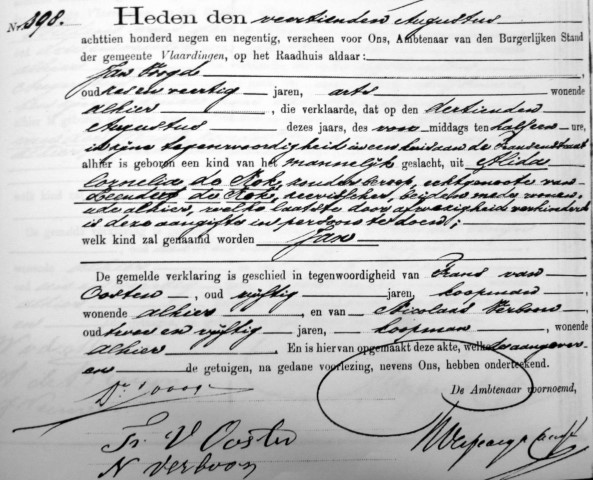 Nr. 898. Heden den veertienden Augustus
achttien honderd negen en negentig, verscheen voor Ons, Ambtenaar van den Burgerlijken Stand
der gemeente Vlaardingen, op het Raadhuis aldaar:
Jan
oud zes en veertig jaren, arts wonende
alhier, die verklaarde, dat op den dertienden
Augustus dezes jaars, des voormiddags ten half een ure,
in zijne tegenwoordigheid in een huis aan de
alhier is geboren een kind van het mannelijk geslacht, uit Alida
Cornelia de Kok, zonder beroep, echtgenoote van
Leendert de Kok, zeevisscher, beiden mede wonen-
de alhier, zijnde laatste door afwezigheid verhinderd
is deze aangifte in persoon te doen;
welk kind zal genaamd worden Jan
De gemelde verklaring is geschied in tegenwoordigheid van Frans van
Oosten, oud vijftig jaren, koopman,
wonende alhier, en van Nicolaas Verboon
oud twee en vijftig jaren, koopman, wonende
alhier. En is hiervan opgemaakt deze akte, welke de aangever
en de getuigen, na gedane voorlezing, nevens Ons, hebben onderteekend.
De Ambtenaar voornoemd,
Fr. V Oosten
N Verboon